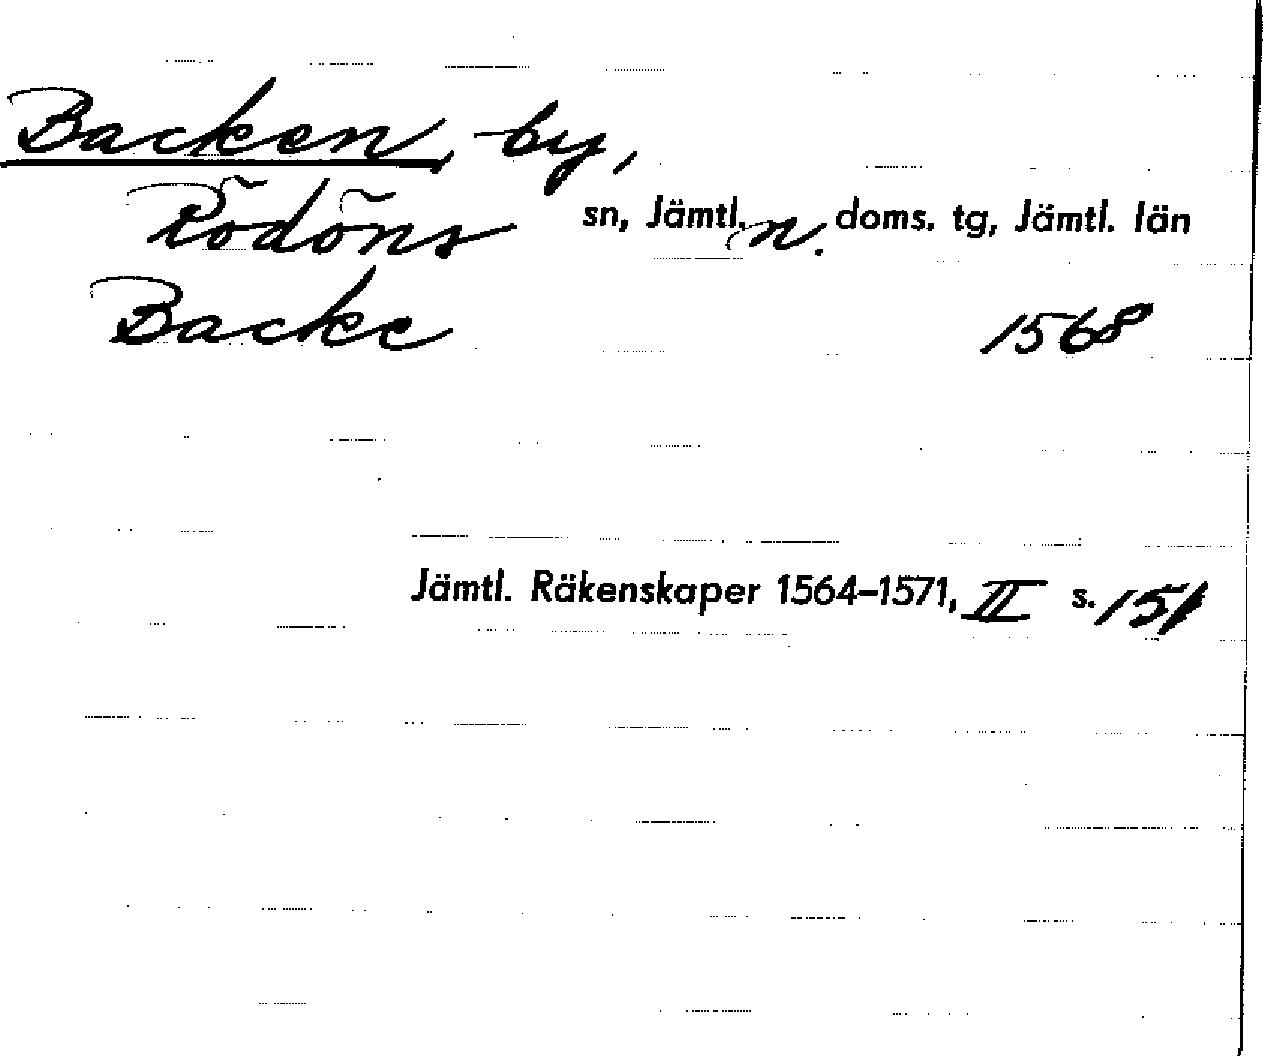 Backen, by,
Rödöns sn, Jämtl. n. doms. tg, Jämtl. län
Backe 1568
Jämtl. Räkenskaper 1564–1571, II s. 151